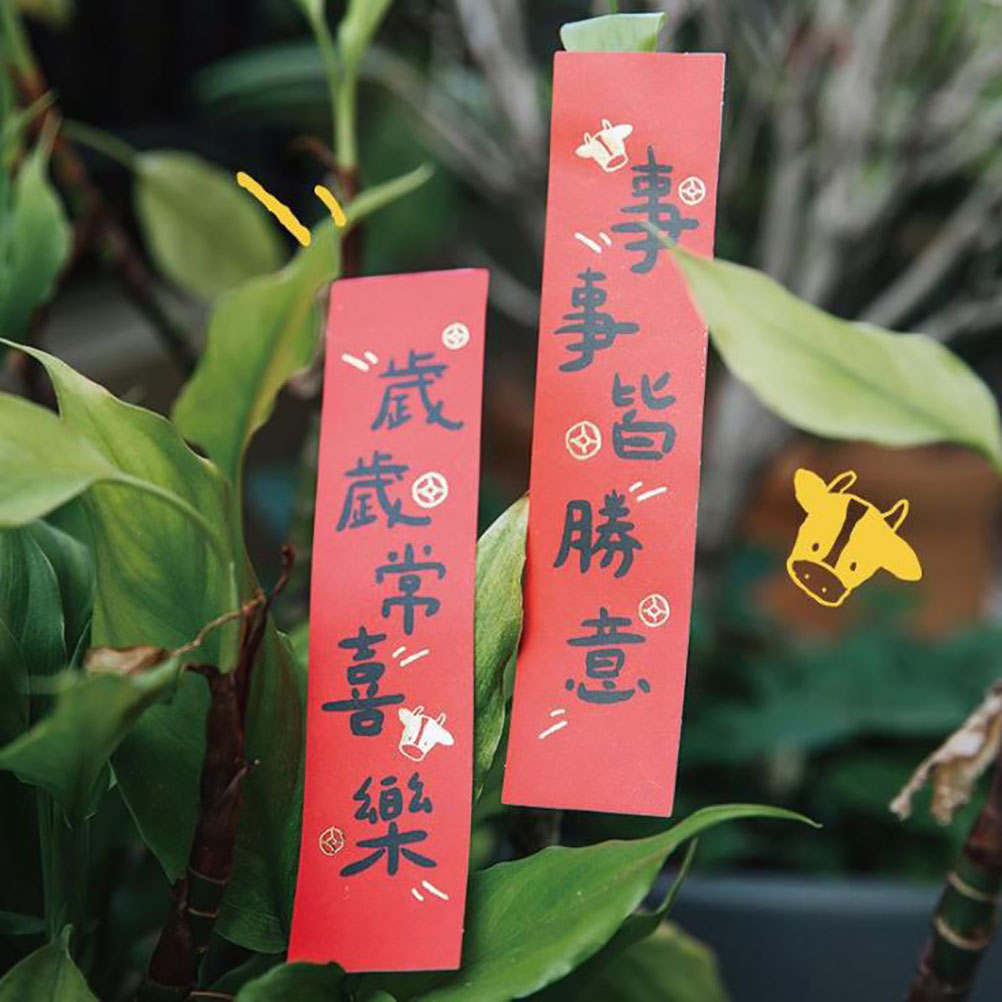 事事皆勝意
歲歲常喜樂